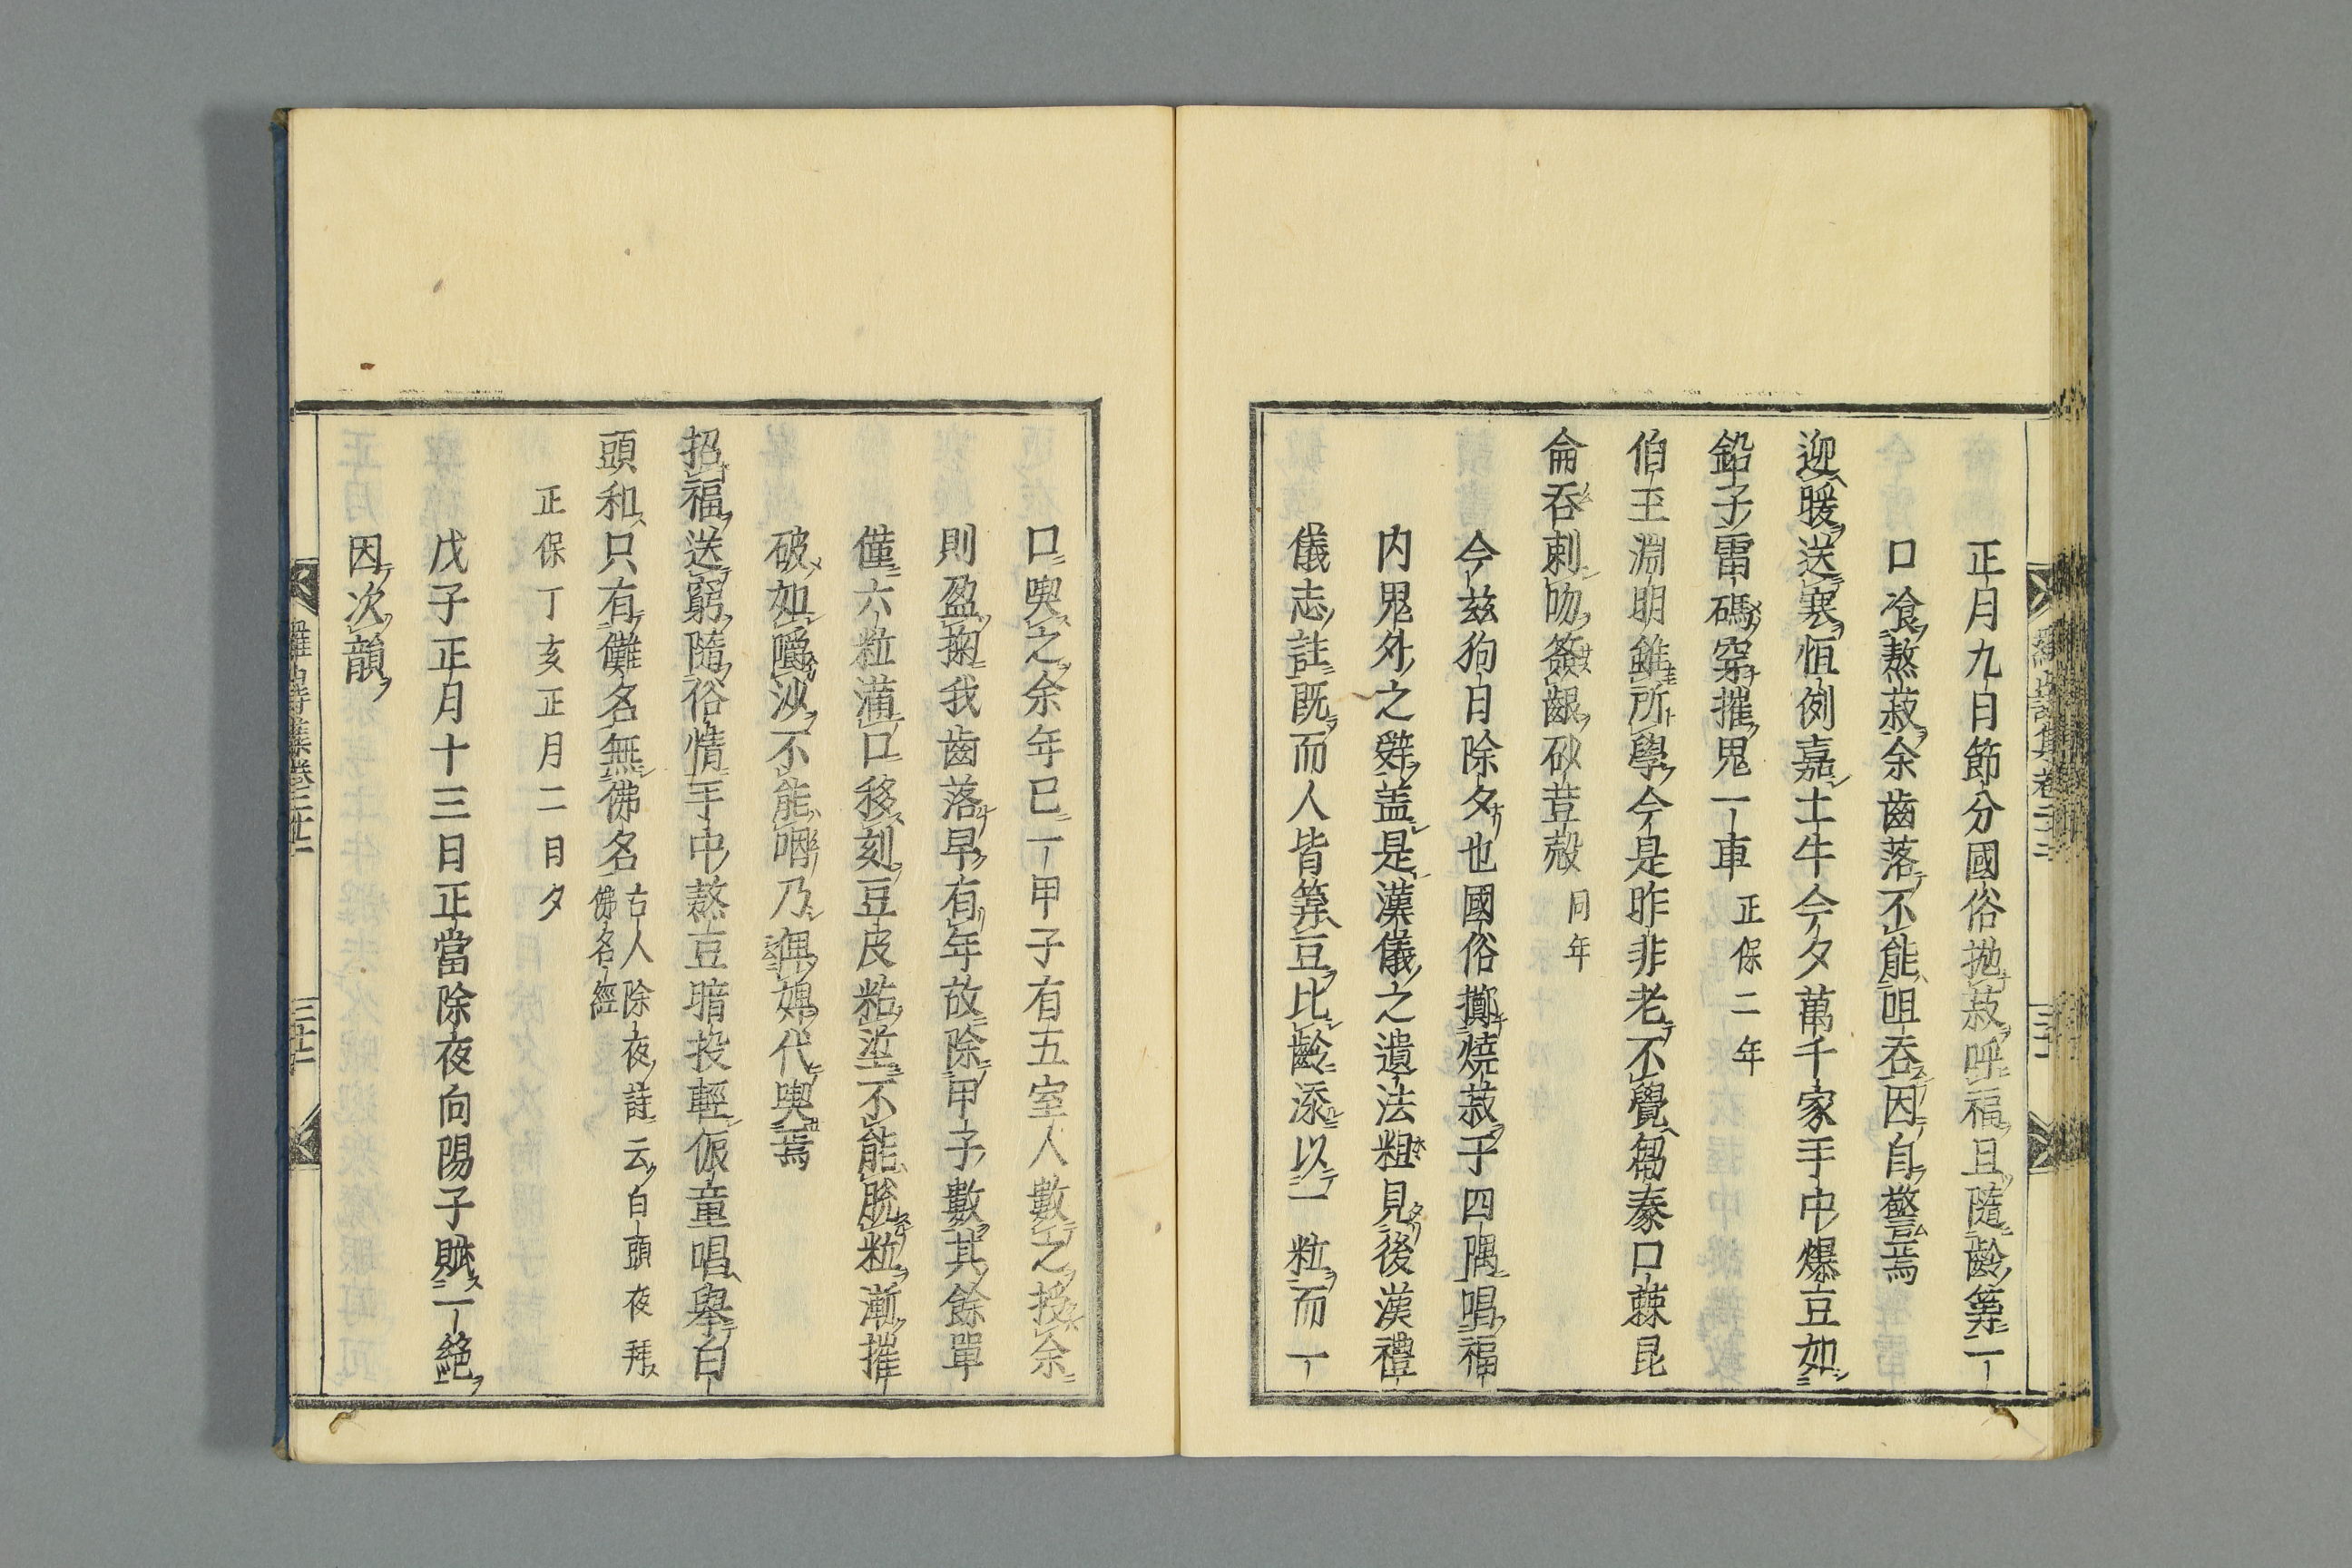 正月九日節分國俗抛菽呼福且隨齡筭一
口飡熬菽余齒落不能咀吞因自警焉
迎暖送寒恒例嘉土牛今夕萬千家手中爆豆如
鉛子雷碼穿摧鬼一車 正保二年
伯玉淵明雖所學今是昨非老不覺芻豢口棘昆
侖吞刺吻簽齦砂荳殻 同年
今兹狗日除夕也國俗擲燒菽于四隅唱福
内鬼外之辤盖是漢儀之遺法粗見後漢禮
儀志註既而人皆筭豆比齡添以一粒而一
口喫之余年已一甲子有五室人數之授余
則盈掬我齒落早有年故除甲子數其餘單
僅六粒滿口移刻豆皮粘塗不能脱粒漸摧
破如嚼沙不能咽乃俾婢代喫焉
招福送窮隨俗情手中熬豆暗投輕侲童唱舉白
頭和只有儺名無佛名
古人除夜詩云白頭夜拜
佛名經
正保丁亥正月二日夕
戊子正月十三日正當除夜向陽子賦一絶
因次韻